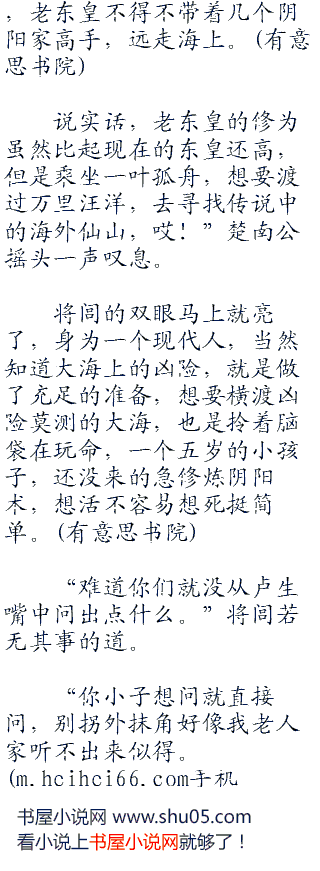 ，老东皇不得不带着几个阴
阳家高手，远走海上。(有意
思书院)
说实话，老东皇的修为
虽然比起现在的东皇还高，
但是乘坐一叶孤舟，想要渡
过万里汪洋，去寻找传说中
的海外仙山，哎！”楚南公
摇头一声叹息。
将闾的双眼马上就亮
了，身为一个现代人，当然
知道大海上的凶险，就是做
了充足的准备，想要横渡凶
险莫测的大海，也是拎着脑
袋在玩命，一个五岁的小孩
子，还没来的急修炼阴阳
术，想活不容易想死挺简
单。(有意思书院)
“难道你们就没从卢生
嘴中问出点什么。”将闾若
无其事的道。
“你小子想问就直接
问，别拐外抹角好像我老人
家听不出来似得。
(m.hcihci66.com手机
书屋小说网 www.shu05.com
看小说上书屋小说网就够了！